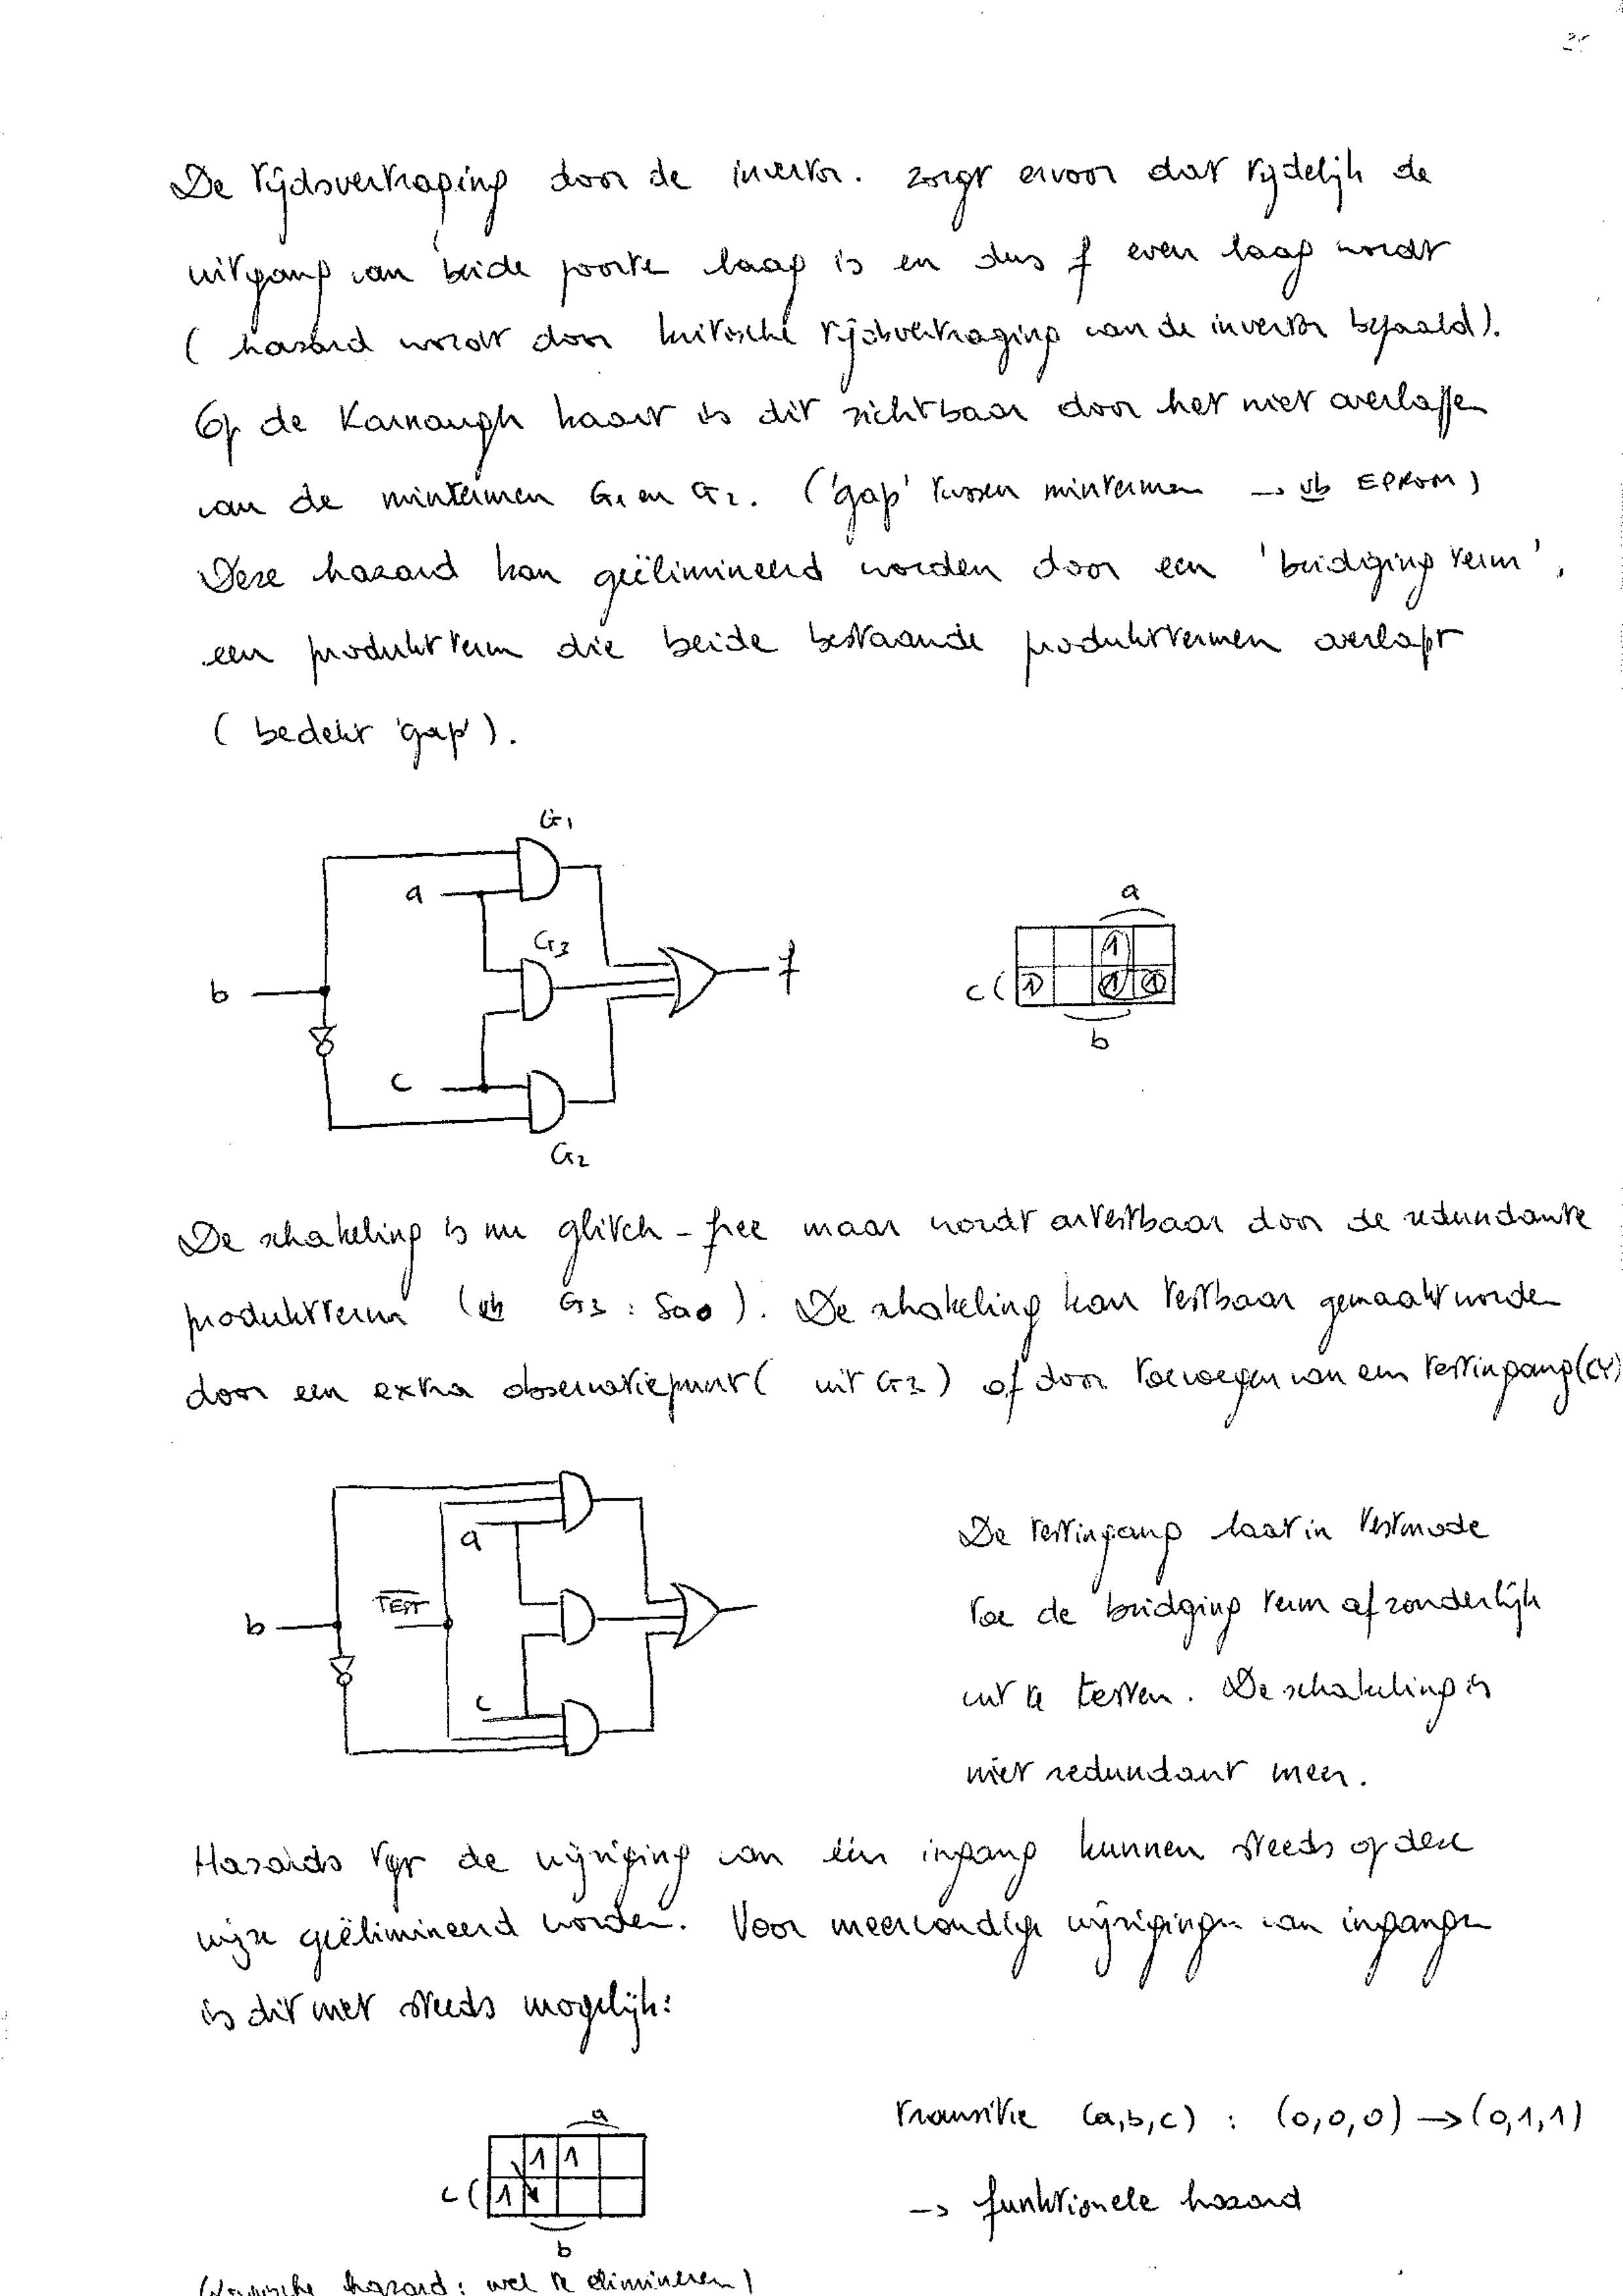 De tijdsvertraging door de invertor. zorgt ervoor dat tijdelijk de
uitgang van beide poorten laag is en dus f even laag wordt
( hazard wordt door kritische tijdsvertraging van de invertor bepaald).
Op de Karnaugh kaart is dit zichtbaar door het niet overlappen
van de mintermen G1 en G2. ('gap' tussen mintermen → vb EPROM)
Deze hazard kan geëlimineerd worden door een 'bridging term',
een produktterm die beide bestaande produkttermen overlapt
( bedekt 'gap').
G1
a
G3
b
f
c
G2
a
1
c ( 1 1 1
b
De schakeling is nu glitch-free maar wordt ontestbaar door de redundante
produktterm (vb G3 : Sa0). De schakeling kan testbaar gemaakt worden
door een extra observatiepunt ( uit G3) of door toevoegen van een testingang
a
TEST
b
c
De testingang laat in testmode
toe de bridging term afzonderlijk
uit te testen. De schakeling is
niet redundant meer.
Hazards tgv de wijziging van één ingang kunnen steeds op deze
wijze geëlimineerd worden. Voor meervoudige wijzigingen van ingangen
is dit niet steeds mogelijk:
a
1 1
c ( 1
b
transitie (a,b,c) : (0,0,0) → (0,1,1)
→ funktionele hazard
hazard : wel te elimineren)